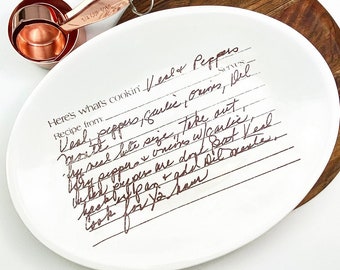 Here's what's cookin' Veal & Peppers
Recipe from: Serves
Veal, peppers, garlic, onions, Del
monte
veal bite size, Take out,
fry peppers & onions w/ garlic,
when peppers are done Put Veal
back in pan & add Del monte,
cook for 1/2 hour